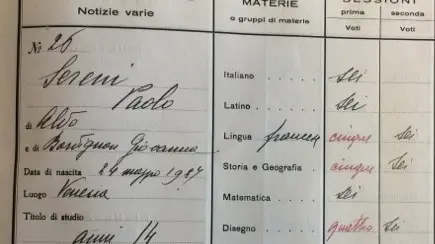 Notizie varie
MATERIE
o gruppi di materie
SESSIONI
prima seconda
Voti Voti
N° 26
Sereni
Paolo
di Aldo
e di Bordignon Giovanna
Data di nascita 24 maggio 1927
Luogo Venezia
Titolo di studio
anni 14
Italiano . . . . . sei
Latino . . . . . . sei
Lingua francese cinque sei
Storia e Geografia . cinque sei
Matematica . . . . sei
Disegno . . . . . quattro sei